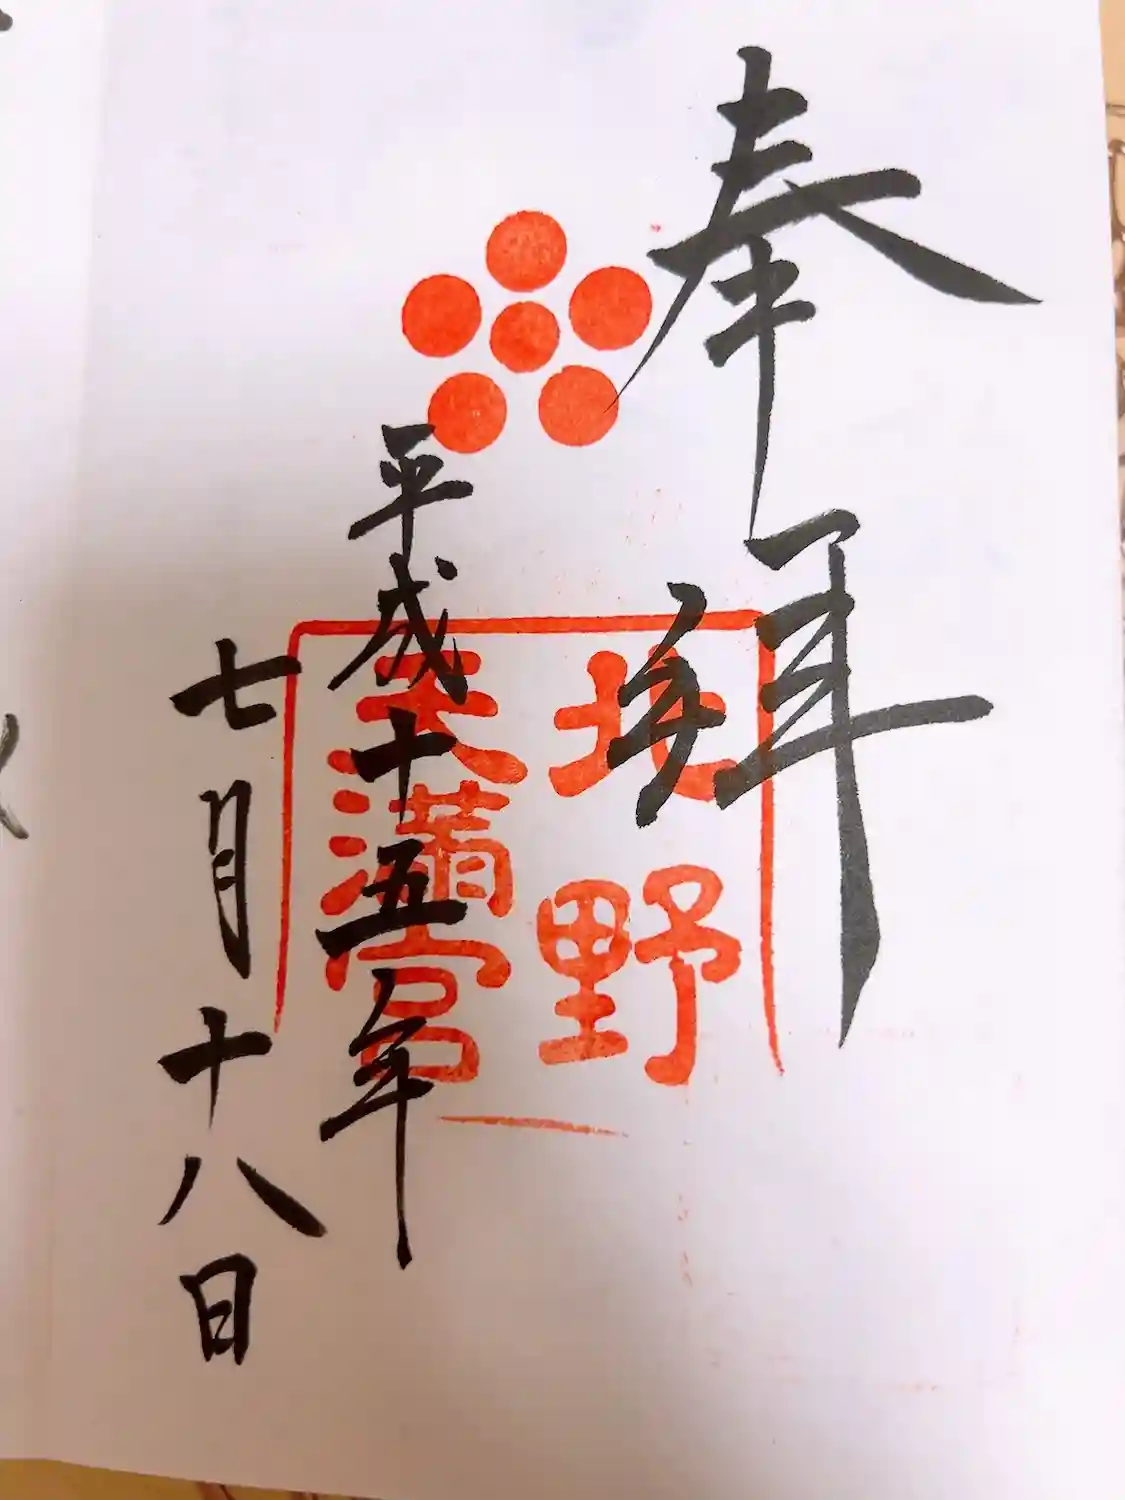 奉拝
北野
天満宮
平成十五年
七月十八日